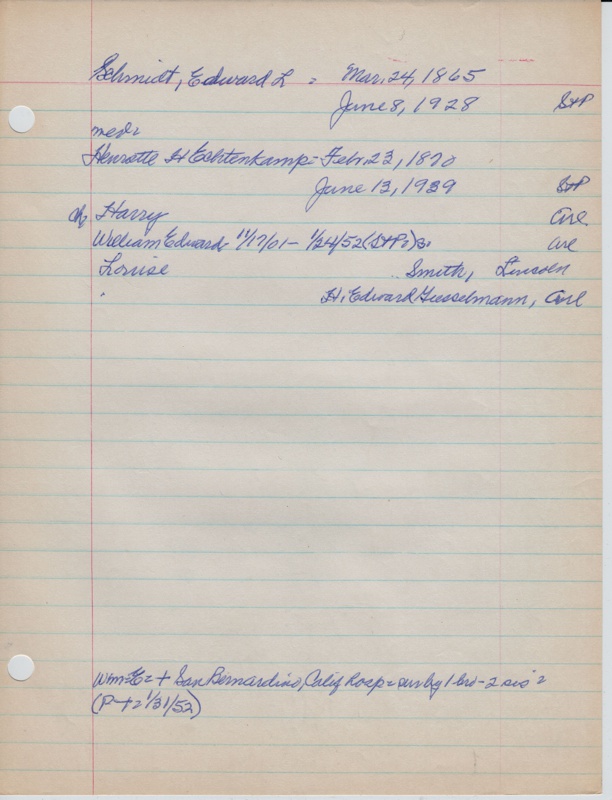 Schmidt, Edward L = Mar. 24, 1865
June 8, 1928 StP
md:
Henrette H Echtenkamp = Febr. 23, 1870
June 13, 1939 StP
ch Harry Arl
William Edward 11/17/01 - 1/24/52 (StP:) Arl
Louise Smith, Lincoln
H. Edward Giesselmann, Arl
Wm E = + San Bernardino, Calif hosp = sur by 1 bro - 2 sis =
(P - + 2 1/31/52)